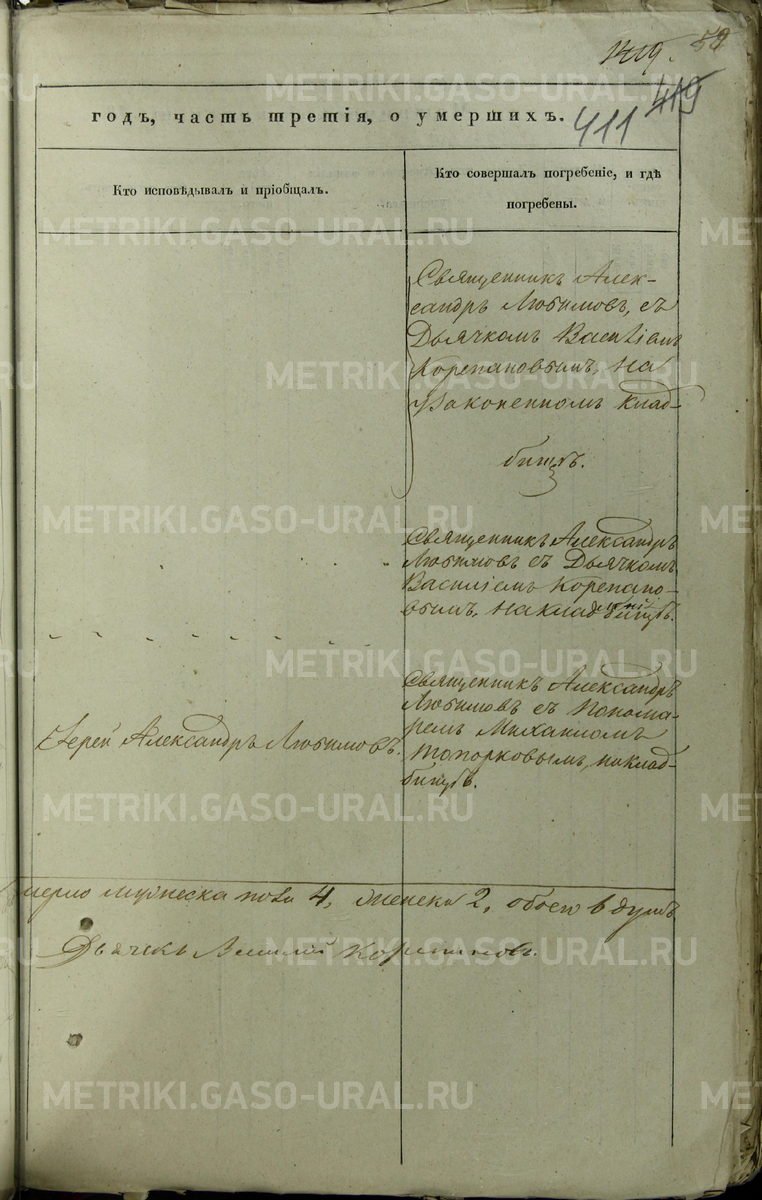 419.
59
419
411
годъ, часть третія, о умершихъ.
Кто исповѣдывалъ и пріобщалъ.
Кто совершалъ погребеніе, и гдѣ
погребены.
Священникъ Алек-
сандръ Любимовъ, съ
Дьячкомъ Василіемъ
Корепановымъ, на
узаконенномъ клад-
бищѣ.
Священникъ Александръ
Любимовъ съ Дьячкомъ
Василіемъ Корепано-
вымъ, на кладбищѣ.
Священникъ Александръ
Любимовъ съ Понома-
ремъ Михаиломъ
Топорковымъ, на клад-
бищѣ.
Іерей Александръ Любимовъ.
мужеска пола 4, женска 2, обоего 6 душъ
Дьячекъ Василій Корепановъ.
METRIKI.GASO-URAL.RU